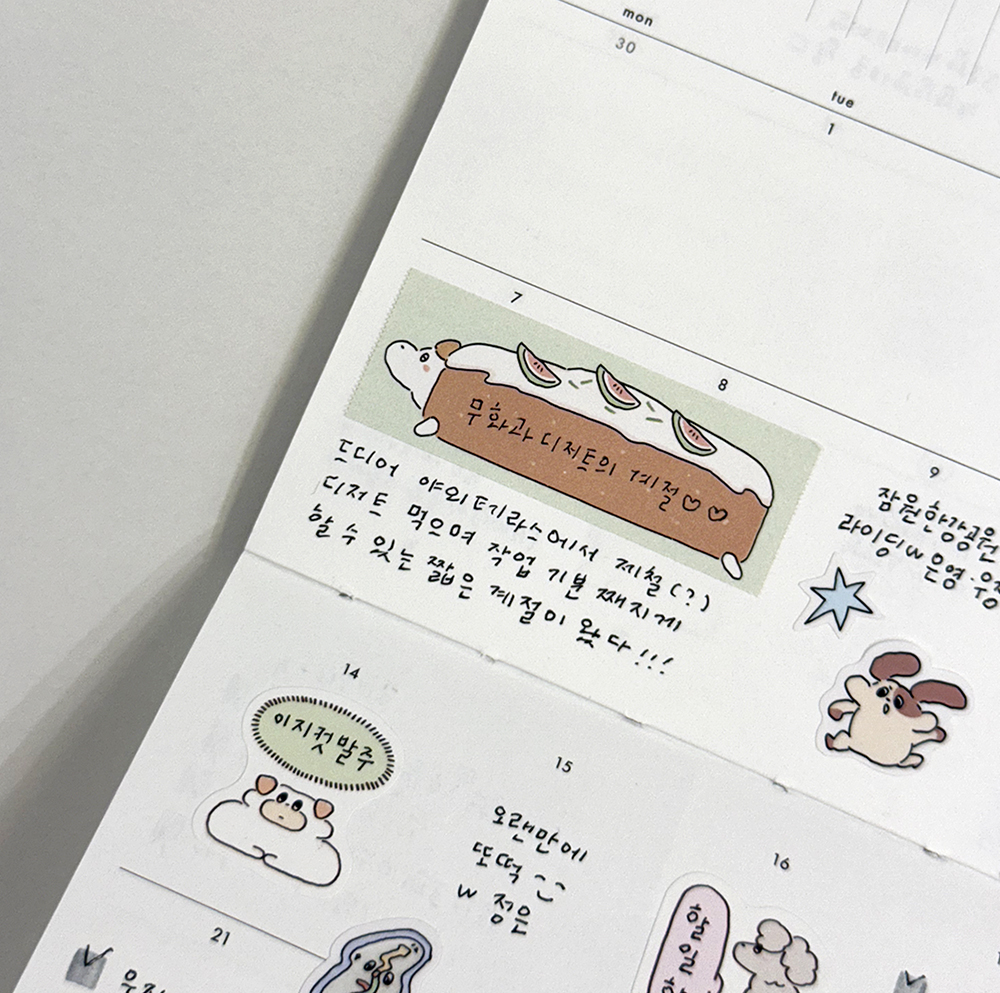 mon
30
tue
1
7
8
9
무화과 디저트의 계절♡♡
드디어 야외 테라스에서 제철(?)
디저트 먹으며 작업 기분 째지게
할 수 있는 짧은 계절이 왔다!!!
잠원한강공원
라이딩 w 은영·우정
14
이지컷 발주
15
오랜만에
또떡
w 정은
16
할
일
21